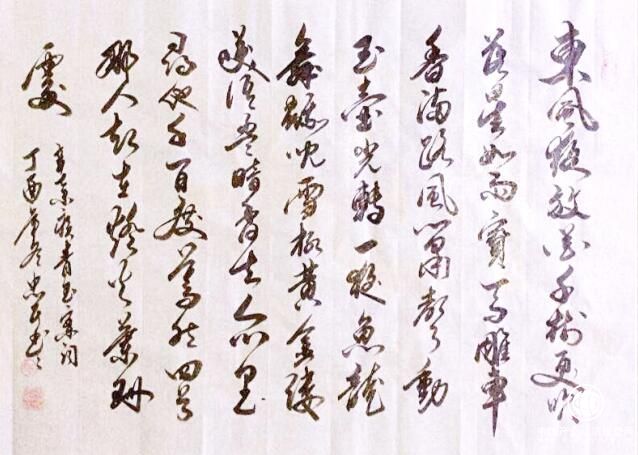 東風夜放花千樹更吹
落星如雨寶馬雕車
香滿路風簫聲動
玉壺光轉一夜魚龍
舞蛾兒雪柳黃金縷
笑語盈暗香去众里
尋他千百度驀然回首
那人卻在燈火蘭珊
處
辛棄疾青玉案詞
丁酉